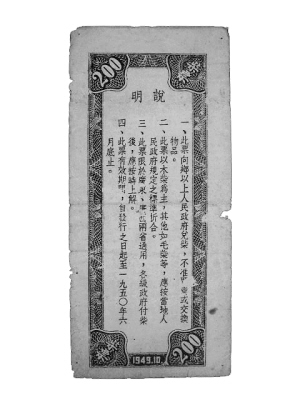 200
說明
一、此票向鄉以上人民政府兌柴，不准 賣或交換
物品。
二、此票以木柴為主，其他如毛柴等，應按當地人
民政府規定之標準折合。
三、此票限於廣東、 兩省通用，各級政府付柴
後，應按時上解。
四、此票有效期間，自發行之日起至一九五〇年六
月底止。
200
1949.10.